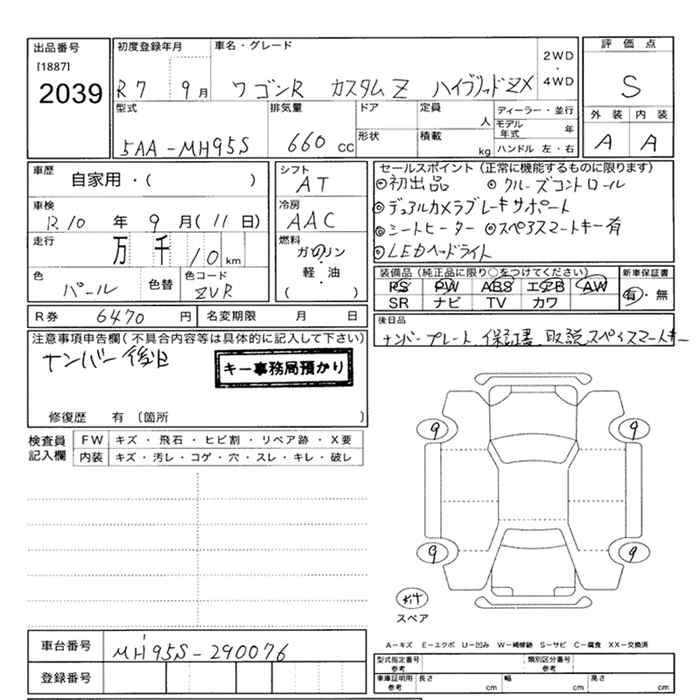 出品番号
[1887]
2039
初度登録年月
R7 9月
車名・グレード
ワゴンR カスタムZ ハイブリッドZX
2WD
・
4WD
評価点
S
型式
5AA-MH95S
排気量
660 CC
ドア
形状
定員
人
積載
kg
ディーラー・並行
モデル年式 年
ハンドル 左・右
外装 内装
A A
車歴
自家用・( )
車検
R10 年 9 月(11 日)
走行
万 千 10 km
色
パール
色替
色コード
ZVR
シフト
AT
冷房
AAC
燃料
ガソリン
・
軽・油
( )
セールスポイント(正常に機能するものに限ります)
◎初出品 ◎クルーズコントロール
◎デュアルカメラブレーキサポート
◎シートヒーター ◎スペアスマートキー有
◎LEDヘッドライト
装備品(純正品に限り○をつけてください)
PS PW ABS エアB AW
SR ナビ TV カワ
新車保証書
有・無
R券 6470 円
名変期限 月 日
後日品
ナンバープレート 保証書 取説 スペアスマートキー
注意事項申告欄(不具合内容等は具体的に記入して下さい)
ナンバー後日
キー事務局預かり
修復歴 有 (箇所 )
検査員
記入欄
FW キズ・飛石・ヒビ割・リペア跡・X要
内装 キズ・汚レ・コゲ・穴・スレ・キレ・破レ
9 9
9 9
スペア
車台番号
MH95S-290076
登録番号
A−キズ E−エクボ U−凹み W−補修跡 S−サビ C−腐食 XX−交換済
型式指定番号
参考
類別区分番号
参考
車庫証明用
参考
長さ cm
幅 cm
高さ cm